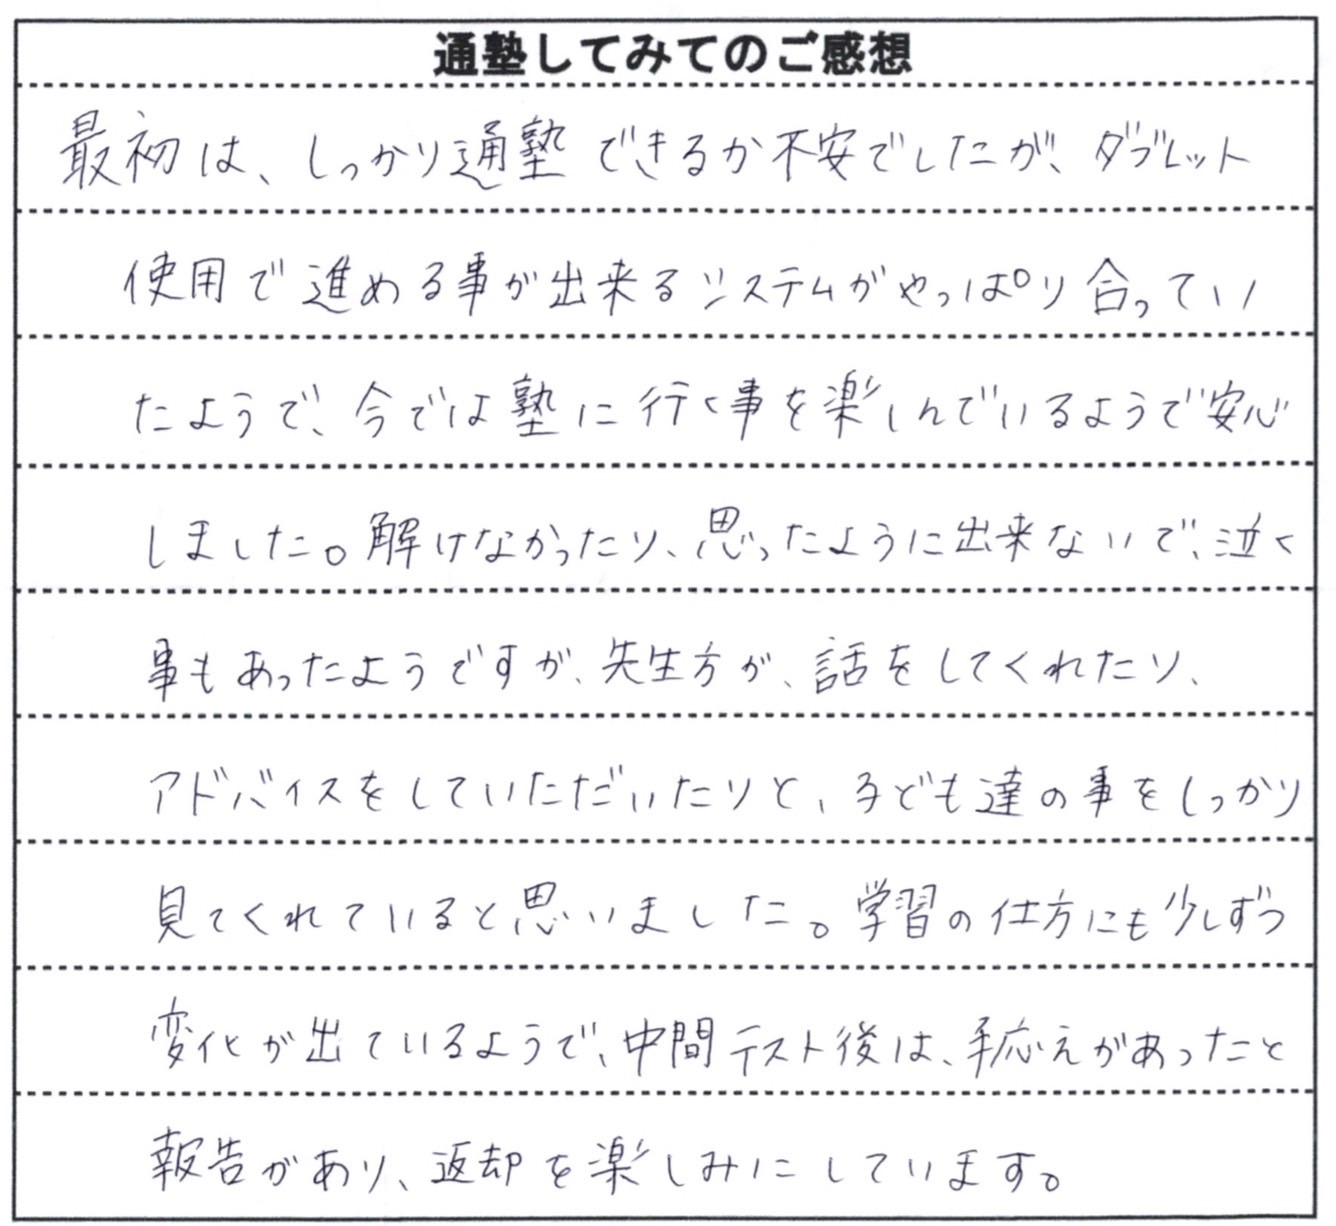 通塾してみてのご感想
最初は、しっかり通塾できるか不安でしたが、タブレット
使用で進める事が出来るシステムがやっぱり合ってい
たようで、今では塾に行く事を楽しんでいるようで安心
しました。解けなかったり、思ったように出来ないで、泣く
事もあったようですが、先生方が、話をしてくれたり、
アドバイスをしていただいたりと、子ども達の事をしっかり
見てくれていると思いました。学習の仕方にも少しずつ
変化が出ているようで、中間テスト後は、手応えがあったと
報告があり、返却を楽しみにしています。